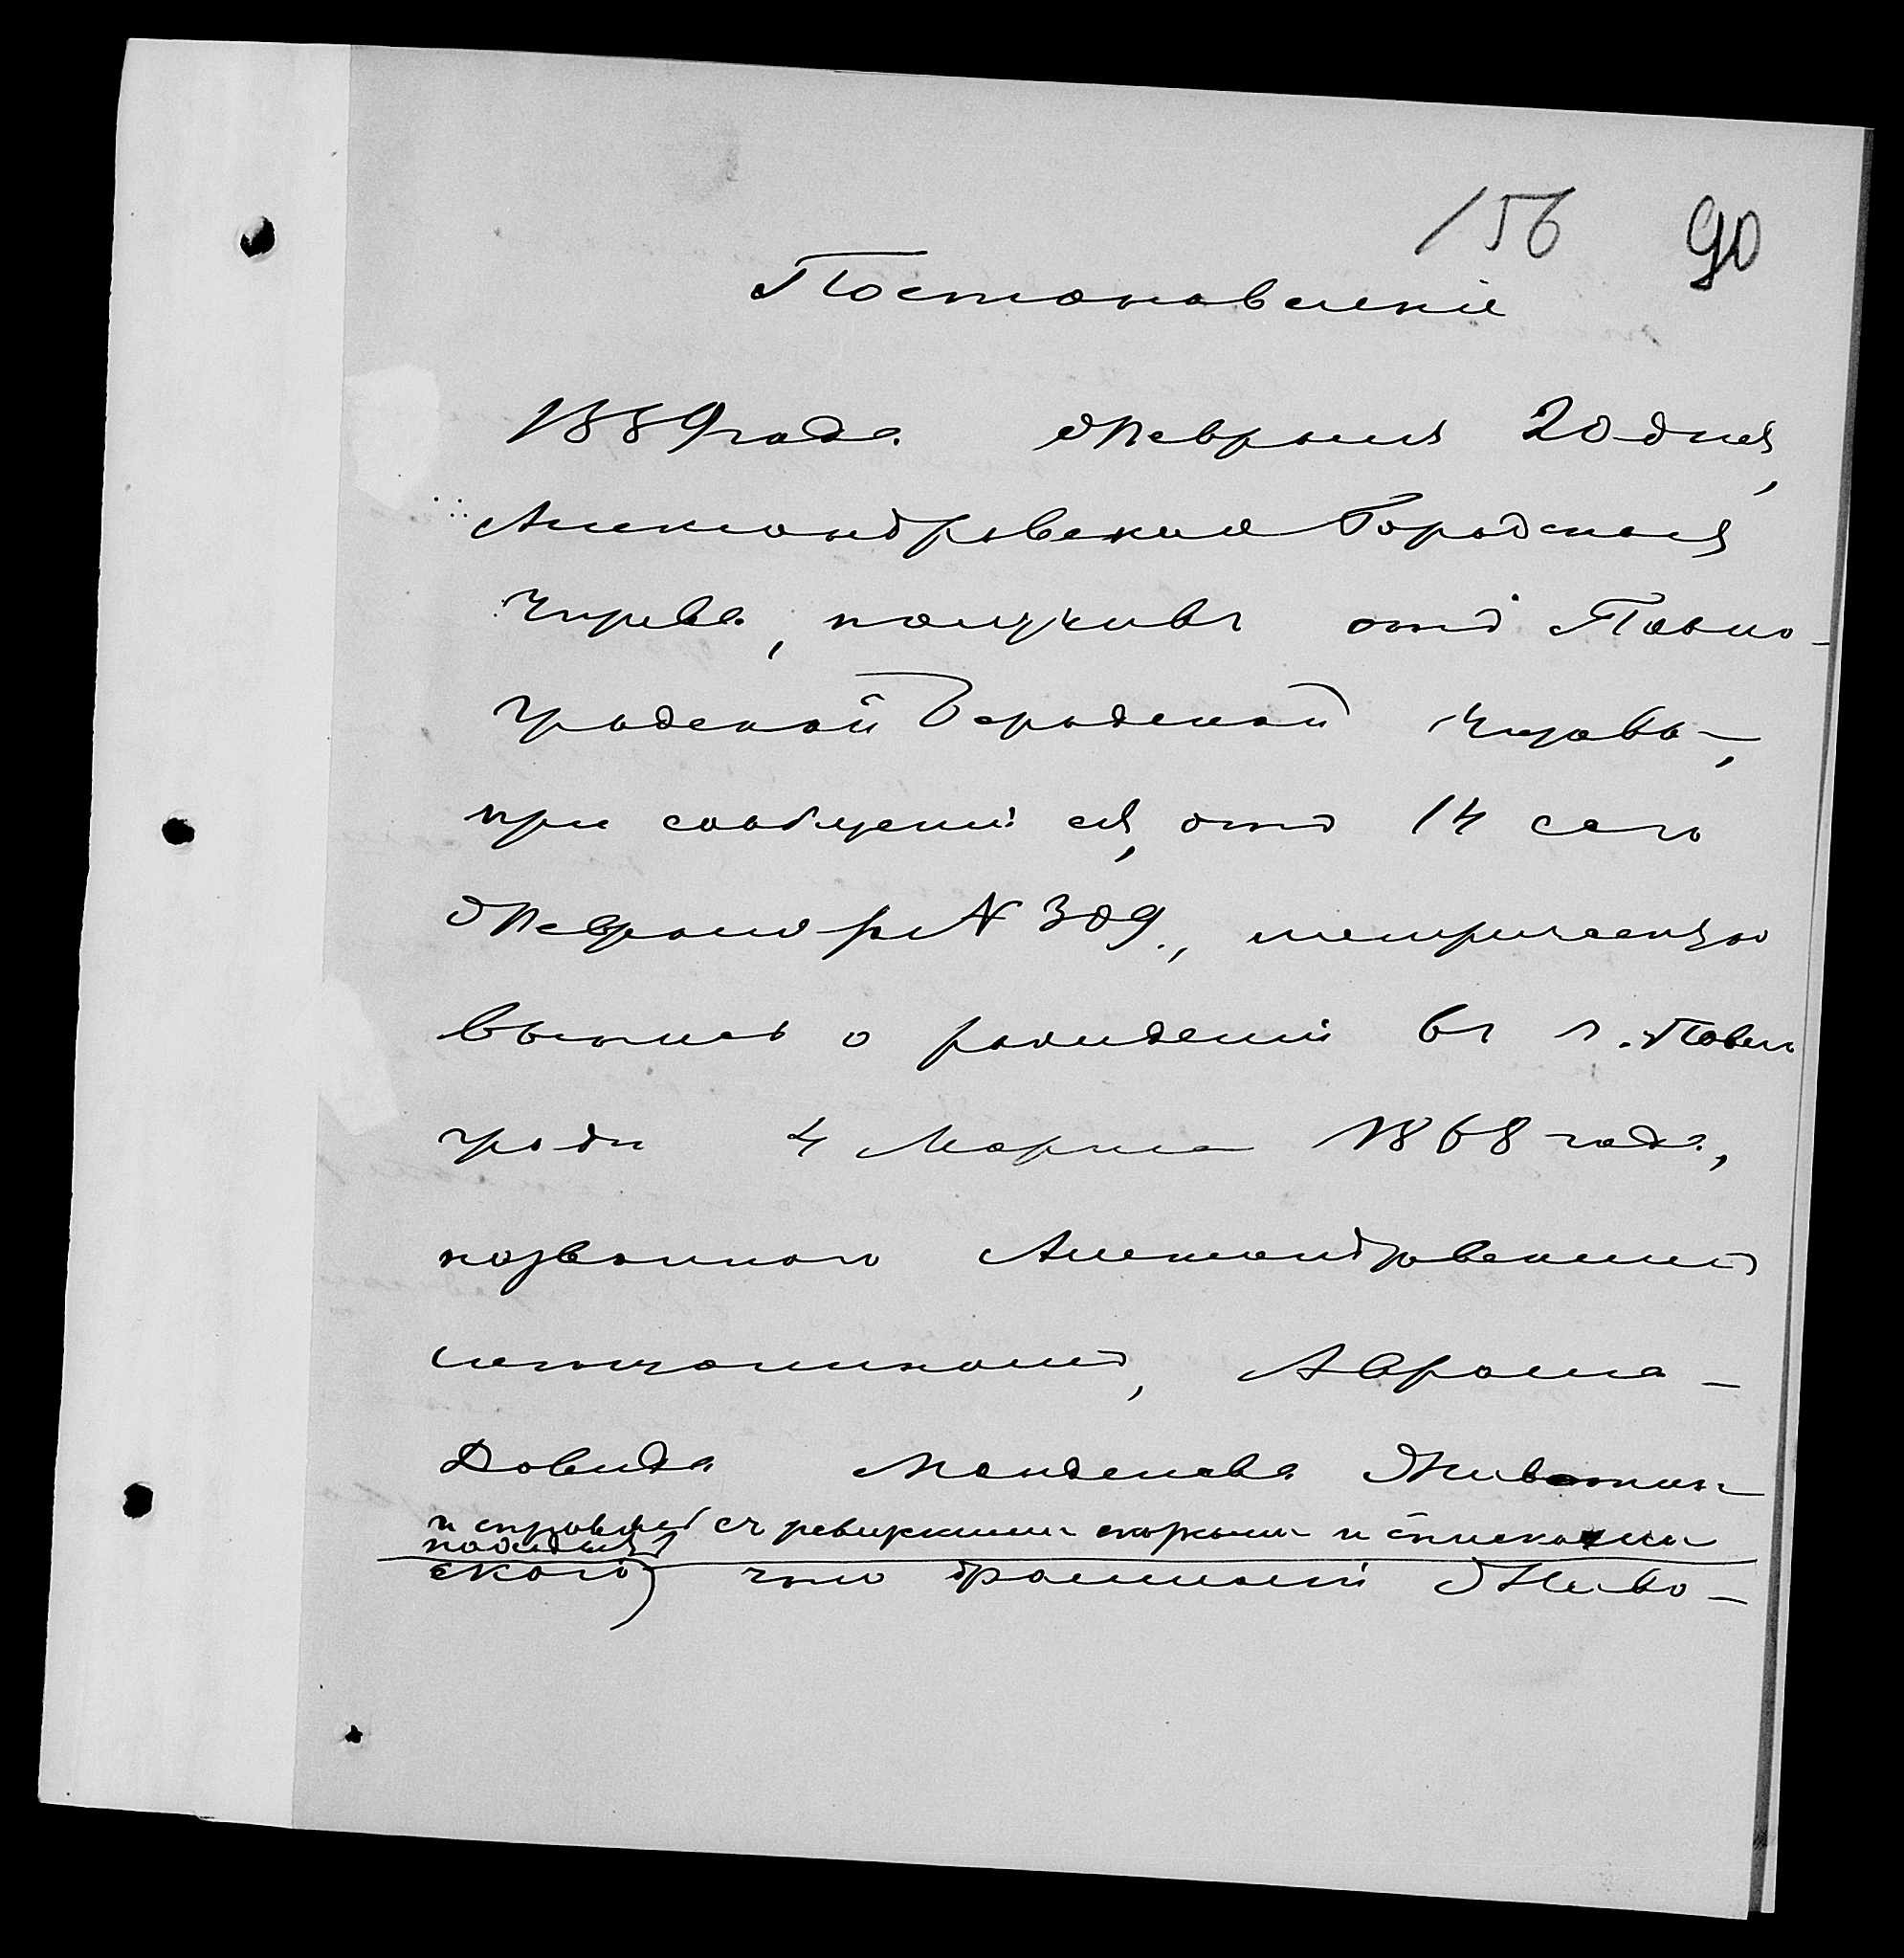 156 90
Постановленіе
1889 года Февраля 20 дня,
Александровская Городская
Управа, получивъ отъ Павло-
градской Городской Управы,
при сообщеніи ея, отъ 14 сего
Февраля за N 309., метрическую
выпись о рожденіи въ г. Павло
градѣ 4 Марта 1868 года,
названнаго Александровскимъ
мѣщаниномъ, Аврама-
Довида Манделева Животин
и справясь съ ревизскими сказками и списками
скаго) что Фамилія Живо-